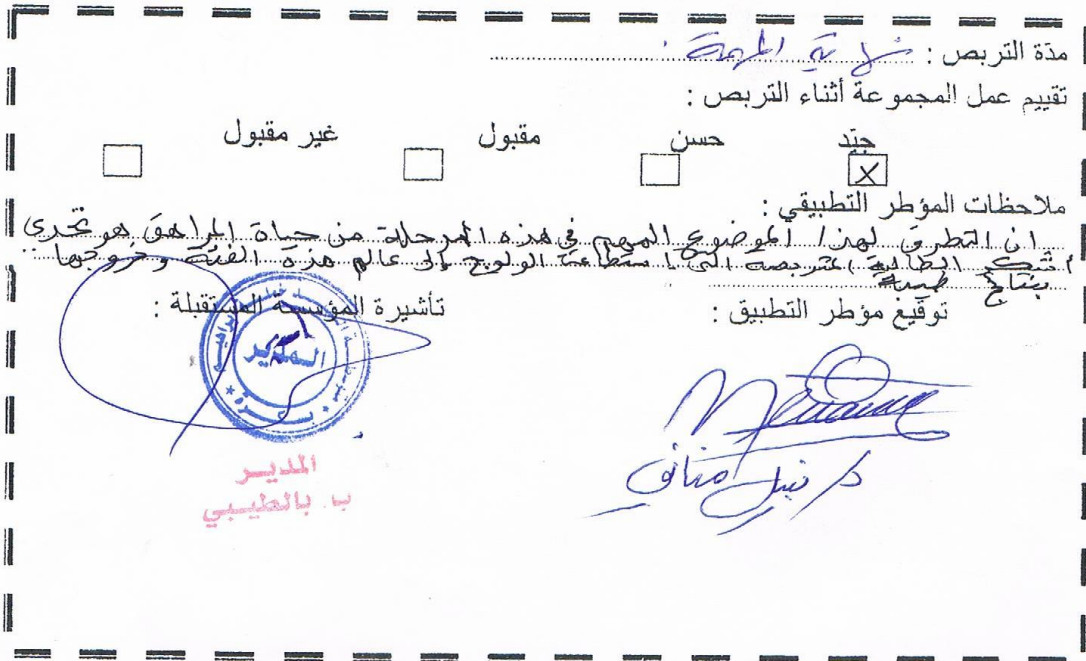 مدّة التربص : نهاية المهمة
تقييم عمل المجموعة أثناء التربص :
جيّد حسن مقبول غير مقبول
X
ملاحظات المؤطر التطبيقي :
ان التطرق لهذا الموضوع المهم في هذه المرحلة من حياة المراهق هو تحدي
أشكر الطالبة المتربصة التي استطاعت الولوج إلى عالم هذه الفئة وخروجها
بنتائج طيبة
توقيع مؤطر التطبيق : تأشيرة المؤسسة المستقبلة :
المدير
بسكرة
المديـر
ب. بالطيـبي
د. نبيل مناني